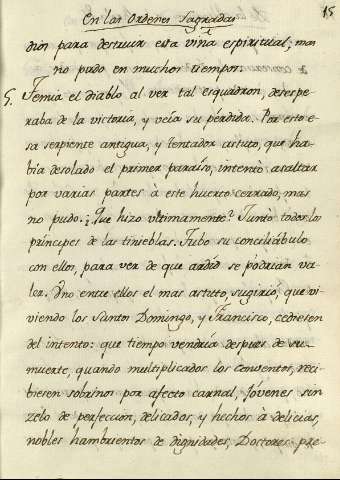 En las Ordenes Sagradas 15
dion para destruir esta viña espiritual; mas
no pudo en muchos tiempos.
5. Temia el diablo al ver tal esquadron, desespe-
raba de la victoria, y veía su pérdida. Por esto e-
sa serpiente antigua, y tentador astuto, que ha-
bía desolado el primer paraíso, intentò asaltar
por varias partes à este huerto cerrado, mas
no pudo. ¿Que hizo ultimamente? Juntò todos los
príncipes de las tinieblas. Tubo su conciliábulo
con ellos, para ver de que ardid se podrian va-
ler. Uno entre ellos el mas astuto, sugirió, que vi-
viendo los Santos Domingo, y Francisco, cediesen
del intento: que tiempo vendria despues de su
muerte, quando multiplicados los conventos, reci-
biesen sobrinos por afecto carnal, Jóvenes sin
zelo de perfeccion, delicados, y hechos à delicias,
nobles hambrientos de dignidades, Doctores pre-